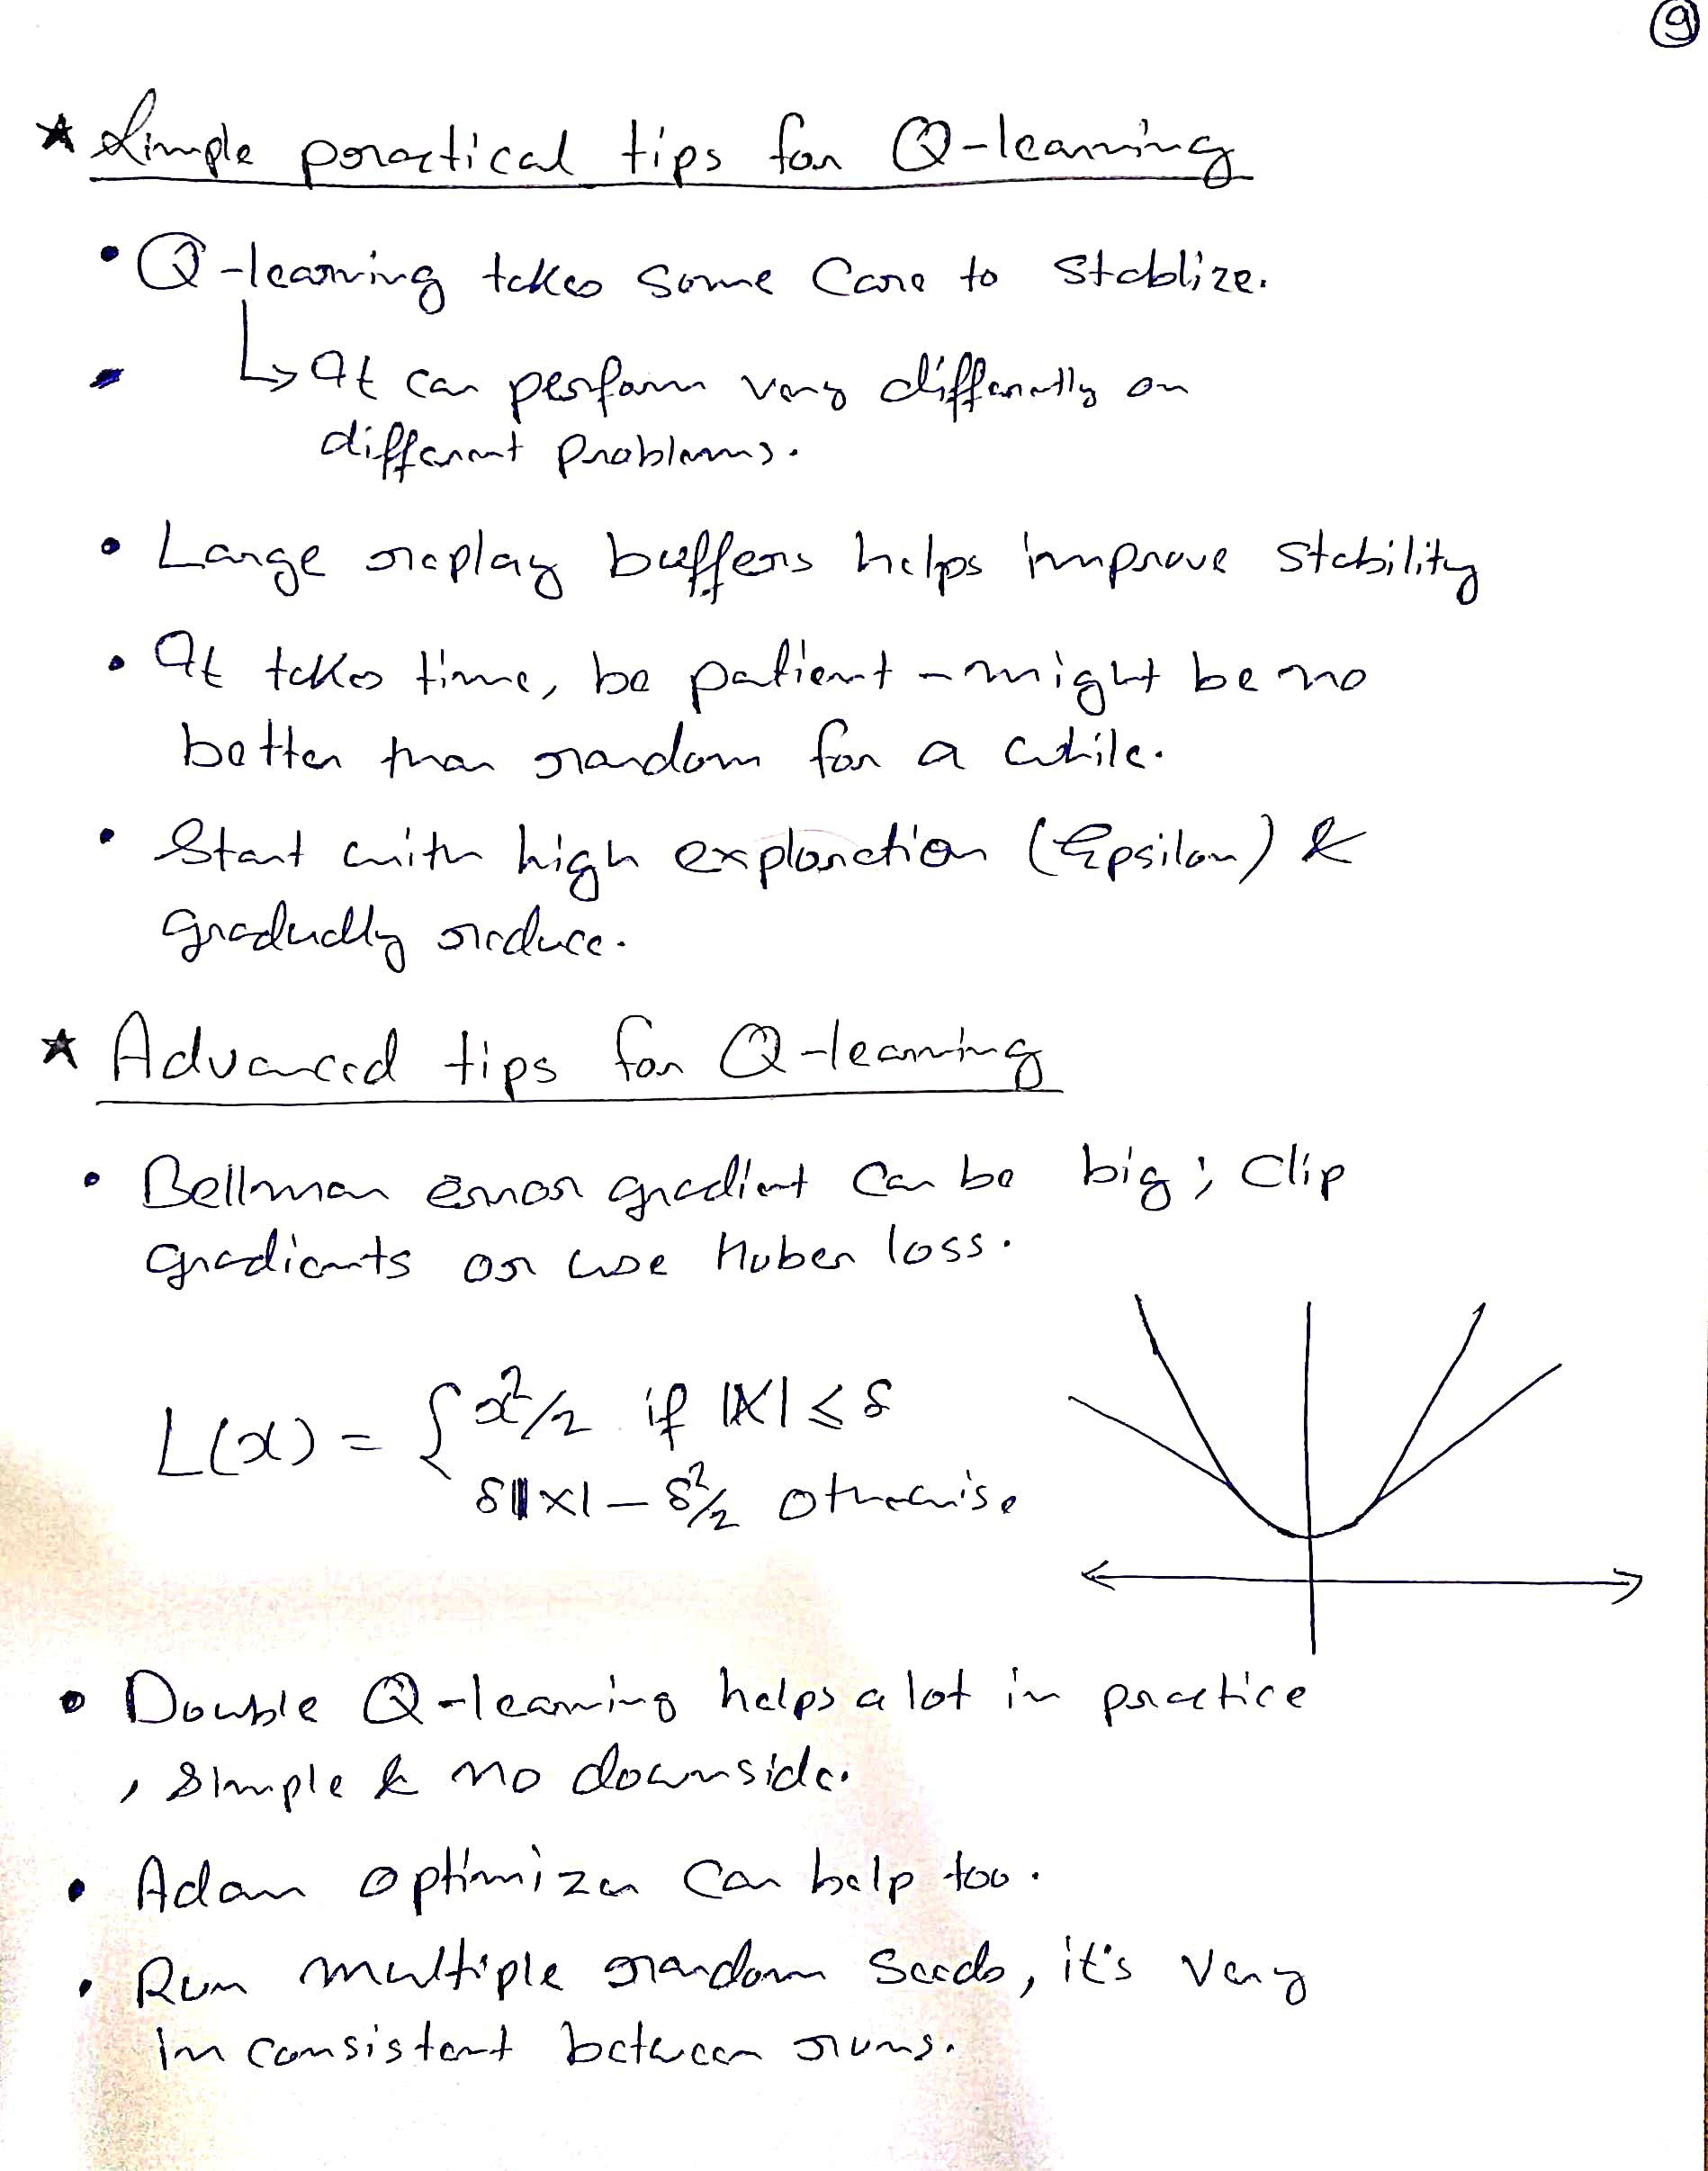 9
★ Simple practical tips for Q-learning
• Q-learning takes some care to stablize.
↳ It can perform very differently on
different problems.
• Large replay buffers helps improve stability
• It takes time, be patient - might be no
better than random for a while.
• Start with high exploration (Epsilon) &
gradually reduce.
★ Advanced tips for Q-learning
• Bellman error gradient can be big; clip
gradients or use Huber loss.
L(x) = { x²/2 if |x| ≤ δ
δ|x| - δ²/2 otherwise
• Double Q-learning helps a lot in practice
, simple & no downside.
• Adam optimizer can help too.
• Run multiple random seeds, it's very
inconsistent between runs.